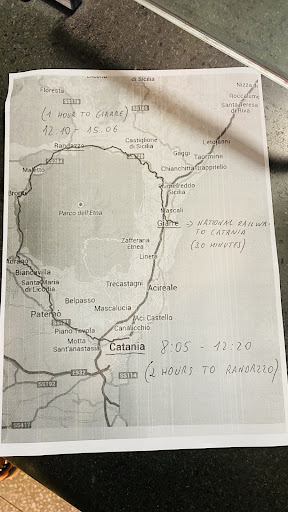 di Sicilia
Nizza di
Floresta
SS116
Roccalumera
Santa Teresa
di Riva
(1 HOUR TO GIARRE)
12.10 - 15.06
Letojanni
Castiglione
di Sicilia
Randazzo
Gaggi
Taormina
Maletto
Chianchitta-Trappitello
Fiumefreddo
Sicilia
Bronte
Mascali
Parco dell'Etna
Giarre → NATIONAL RAILWAY
TO CATANIA
(30 MINUTES)
Zafferana
Etnea
Linera
Adrano
Biancavilla
Santa Maria
di Licodia
Trecastagni
Acireale
Belpasso
Mascalucia
Paternò
Aci Castello
Piano Tavola
Cannalicchio
Motta
Sant'anastasia
Catania 8:05 - 12:20
(2 HOURS TO RANDAZZO)
SS192
SS114
SS417